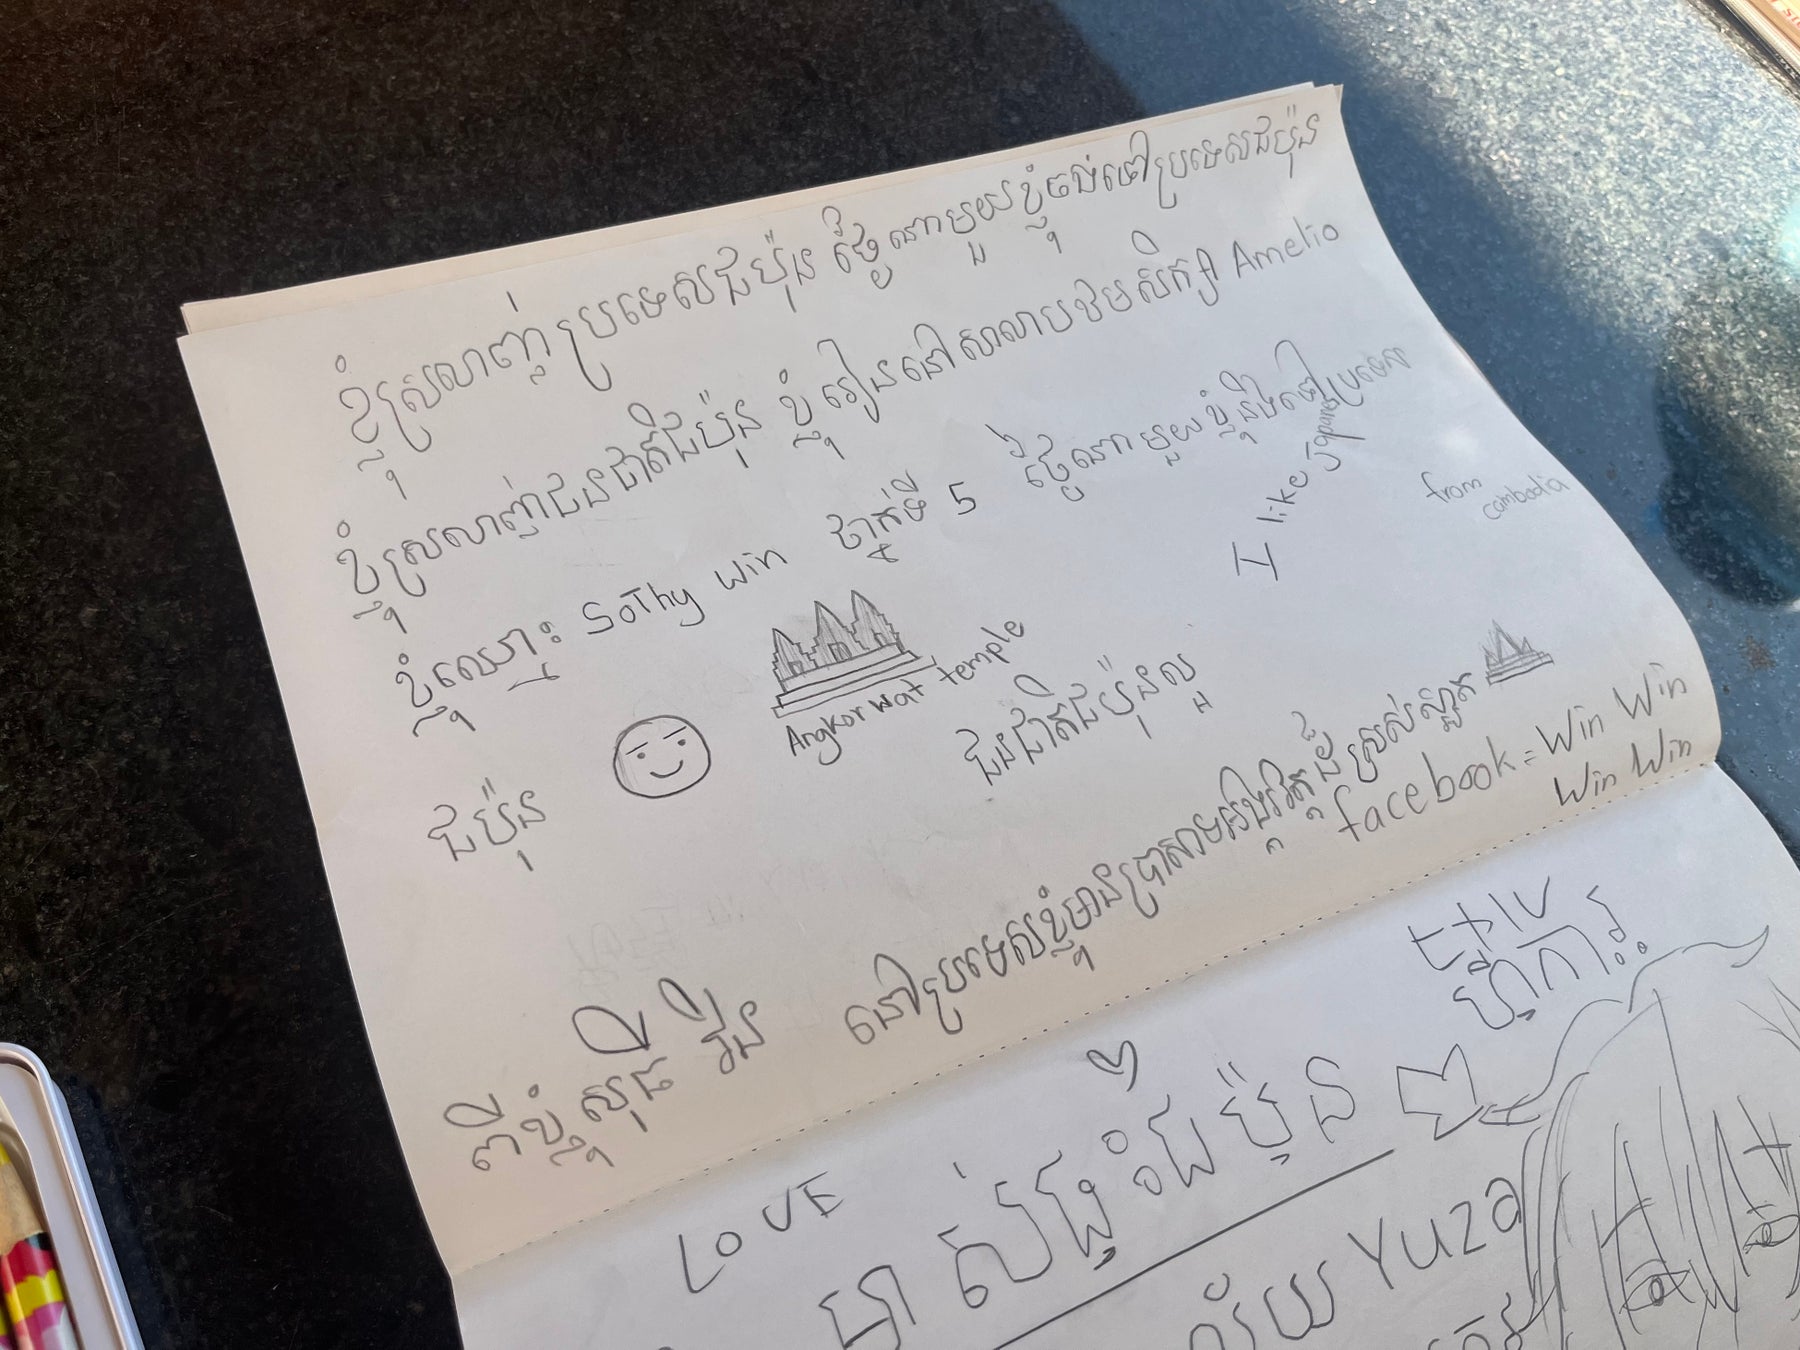 ខ្ញុំស្រលាញ់ប្រទេសជប៉ុន ថ្ងៃណាមួយខ្ញុំចង់ទៅប្រទេសជប៉ុន
ខ្ញុំស្រលាញ់ជនជាតិជប៉ុន ខ្ញុំរៀននៅសាលាបឋមសិក្សា Amelio
ខ្ញុំឈ្មោះ SoThy Win ថ្នាក់ទី 5 ថ្ងៃណាមួយខ្ញុំនឹងទៅប្រទេស
ជប៉ុន
I like Japan
from
cambodia
Angkor wat temple
ជនជាតិជប៉ុនល្អ
ពីខ្ញុំ សុធី វីន នៅប្រទេសខ្ញុំមានប្រាសាទអង្គរវត្តដ៏ស្រស់ស្អាត
facebook = Win Win
Win Win
LOVE
ជប៉ុន
Yuza